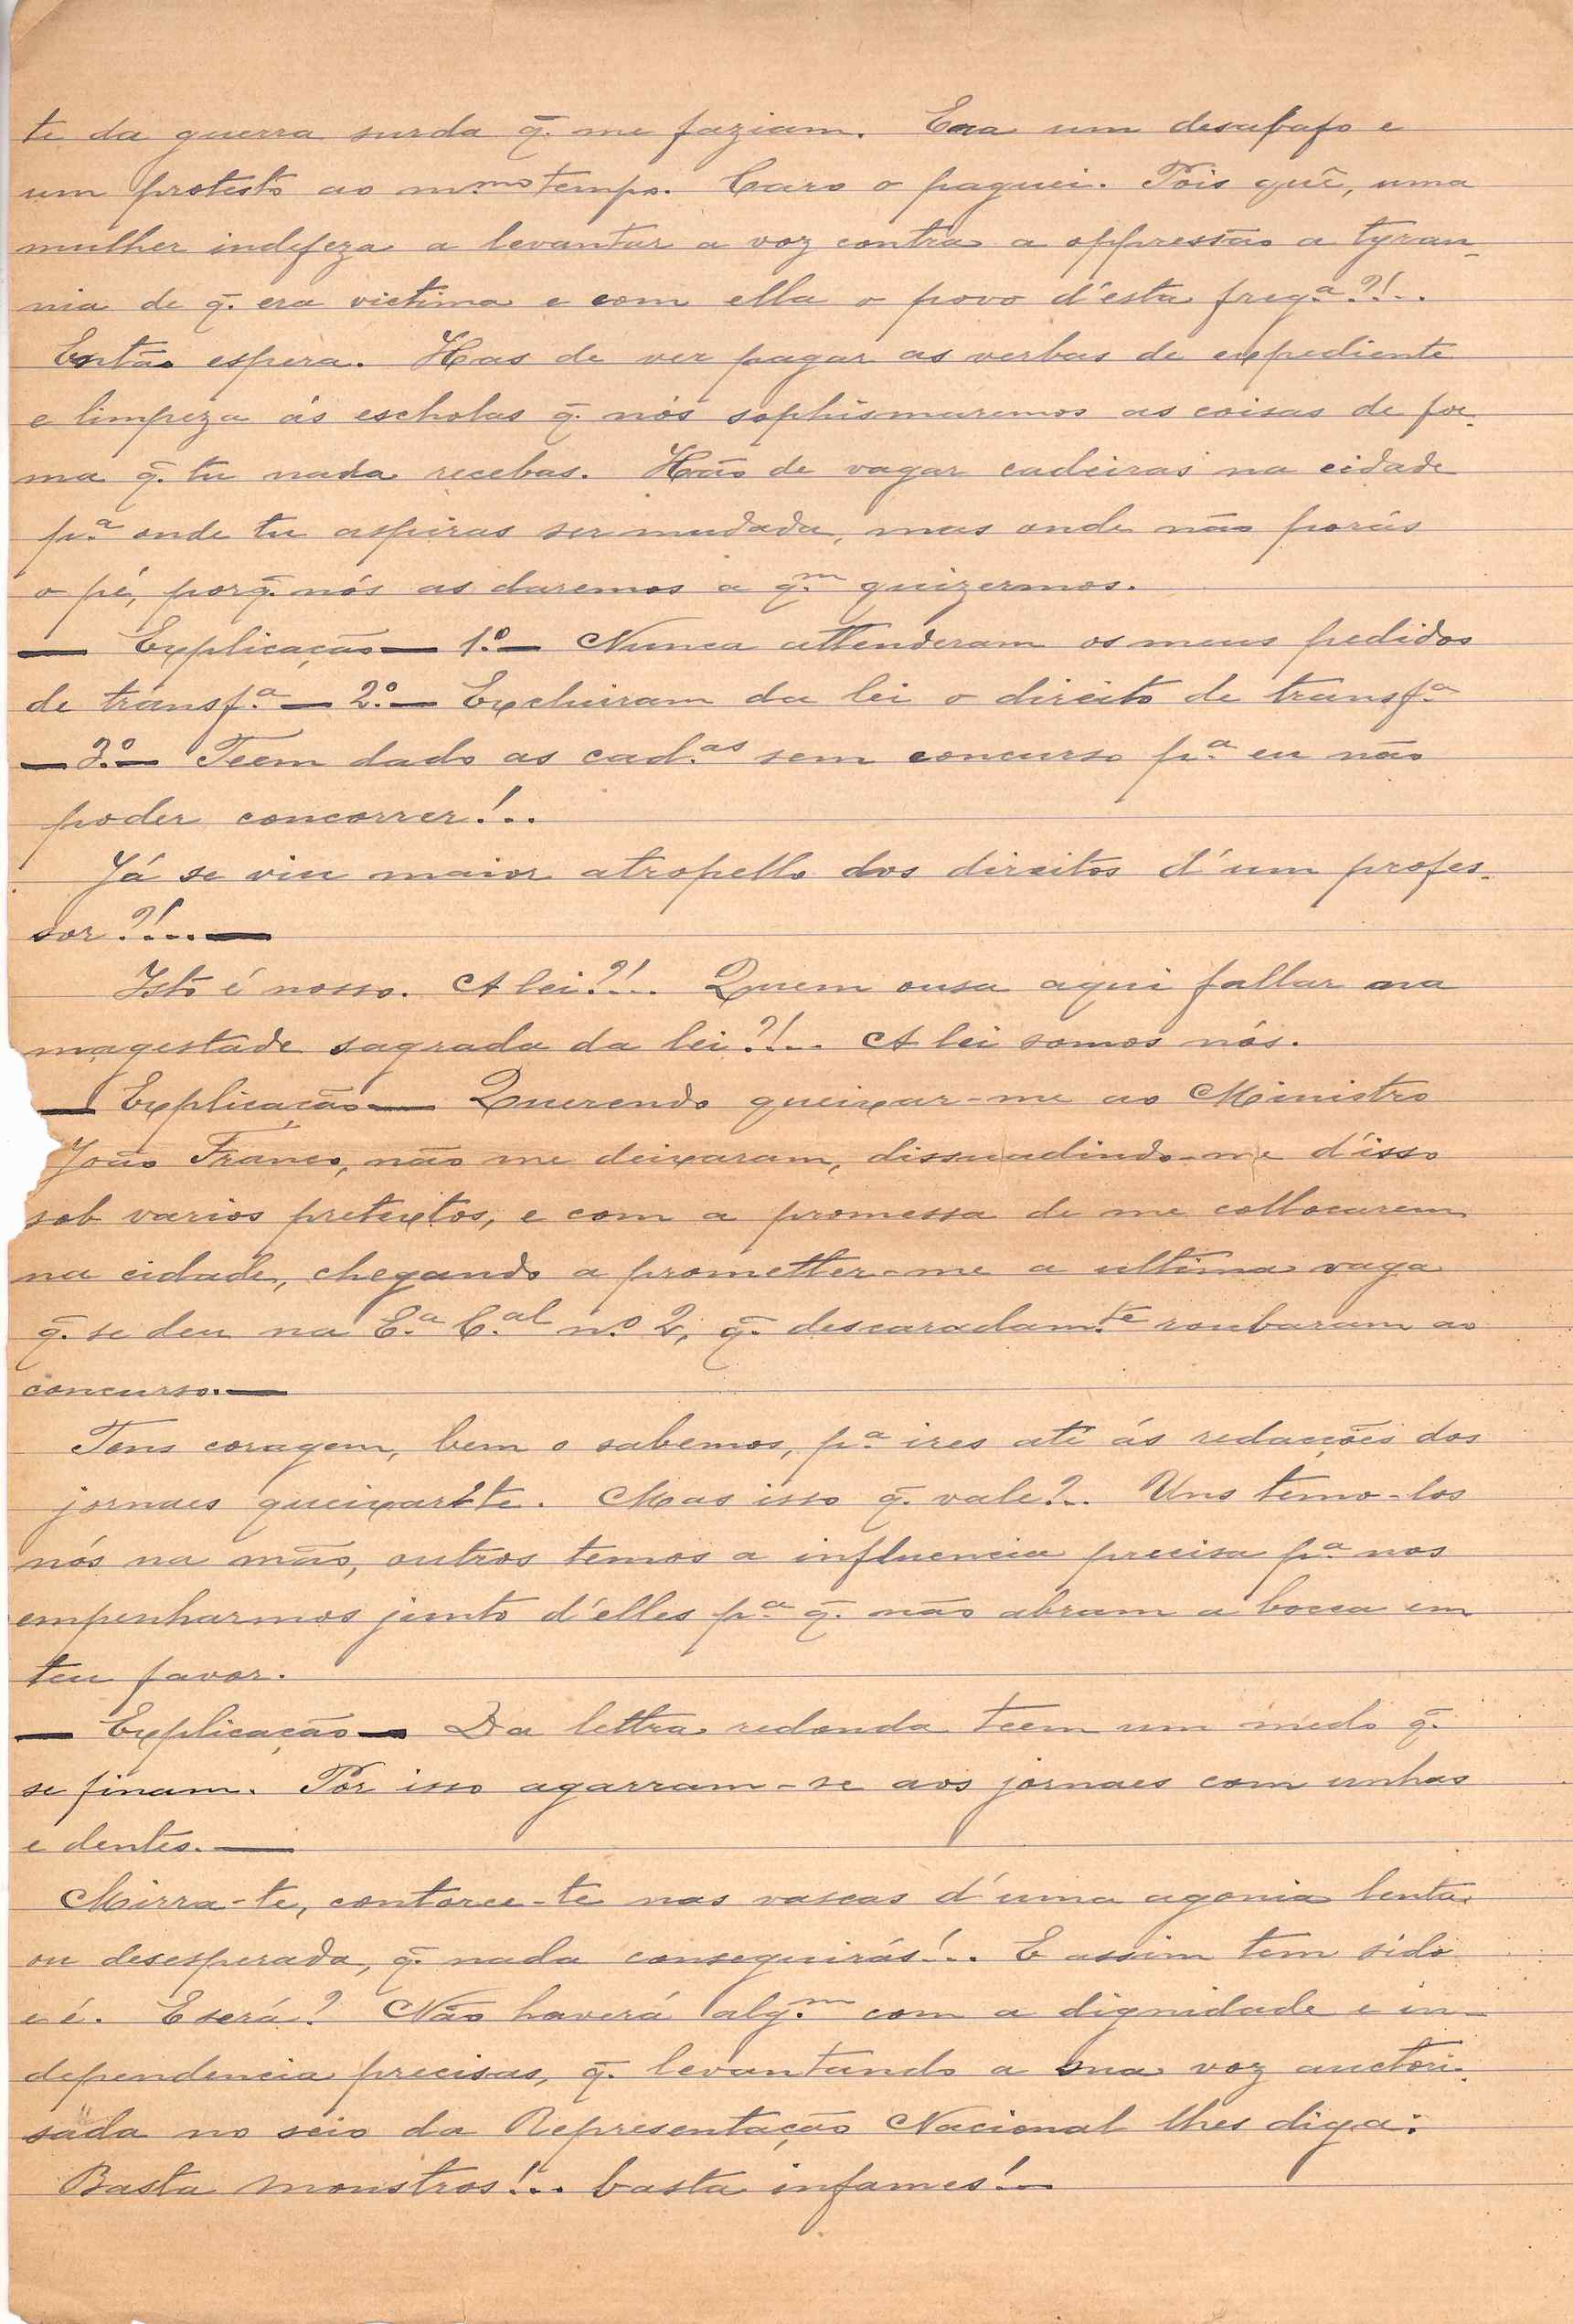 te da guerra surda q̃. me faziam. Era um desabafo e
um protesto ao mmo tempo. Caro o paguei. Pois quê, uma
mulher indefeza a levantar a voz contra a oppressão a tyran-
nia de q̃. era victima e com ella o povo d'esta fregª?!..
Então espera. Has de ver pagar as verbas de expediente
e limpeza ás escholas q̃. nós sophismaremos as coisas de for-
ma q̃. tu nada recebas. Hão de vagar cadeiras na cidade
p.ª onde tu aspiras ser mudada, mas onde não porás
o pé, porq̃. nós as daremos a q.m quizermos.
— Explicação — 1.º — Nunca attenderam os meus pedidos
de transf.ª — 2.º — Excluiram da lei o direito de transf.ª
— 3.º — Teem dado as cad.as sem concurso p.ª eu não
poder concorrer!..
Já se viu maior atropello dos direitos d'um profes-
sor?!... —
Isto é nosso. A lei?!.. Quem ousa aqui fallar na
magestade sagrada da lei?!... A lei somos nós.
— Explicação — Querendo queixar-me ao Ministro
João Franco, não me deixaram, dissuadindo-me d'isso
sob varios pretextos, e com a promessa de me collocarem
na cidade, chegando a prometter-me a ultima vaga
q̃. se deu na E.ª C.al n.º 2, q̃. descaradam.te roubaram ao
concurso. —
Tens coragem, bem o sabemos, p.ª ires até ás redacções dos
jornaes queixar-te. Mas isso q̃. vale?.. Uns temo-los
nós na mão, outros temos a influencia precisa p.ª nos
empenharmos junto d'elles p.ª q̃. não abram a bocca em
teu favor.
— Explicação — Da lettra redonda teem um medo q̃.
se finam. Por isso agarram-se aos jornaes com unhas
e dentes. —
Mirra-te, contorce-te nas vascas d'uma agonia lenta
ou desesperada, q̃. nada conseguirás!.. E assim tem sido
e é. E será? Não haverá alg.m com a dignidade e in-
dependencia precisas, q̃. levantando a sua voz auctori-
sada no seio da Representação Nacional lhes diga:
Basta monstros!.. basta infames!..